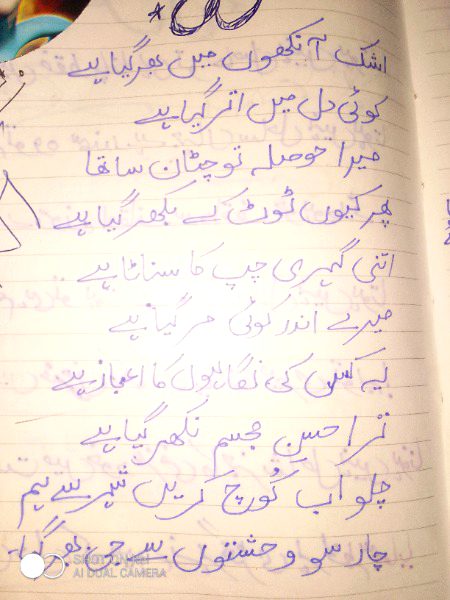 اشک آنکھوں میں بھر گیا ہے
کوئی دل میں اتر گیا ہے
میرا حوصلہ تو چٹان سا تھا
پھر کیوں ٹوٹ کے بکھر گیا ہے
اتنی گہری چپ کا سناٹا ہے
میرے اندر کوئی مر گیا ہے
یہ کس کی نگاہوں کا اعجاز ہے
تیرا حسن مجسم نکھر گیا ہے
چلو اب کُوچ کریں شہر سے ہم
چار سو وحشتوں سے جی بھر گیا۔
SHOT ON
AI DUAL CAMERA